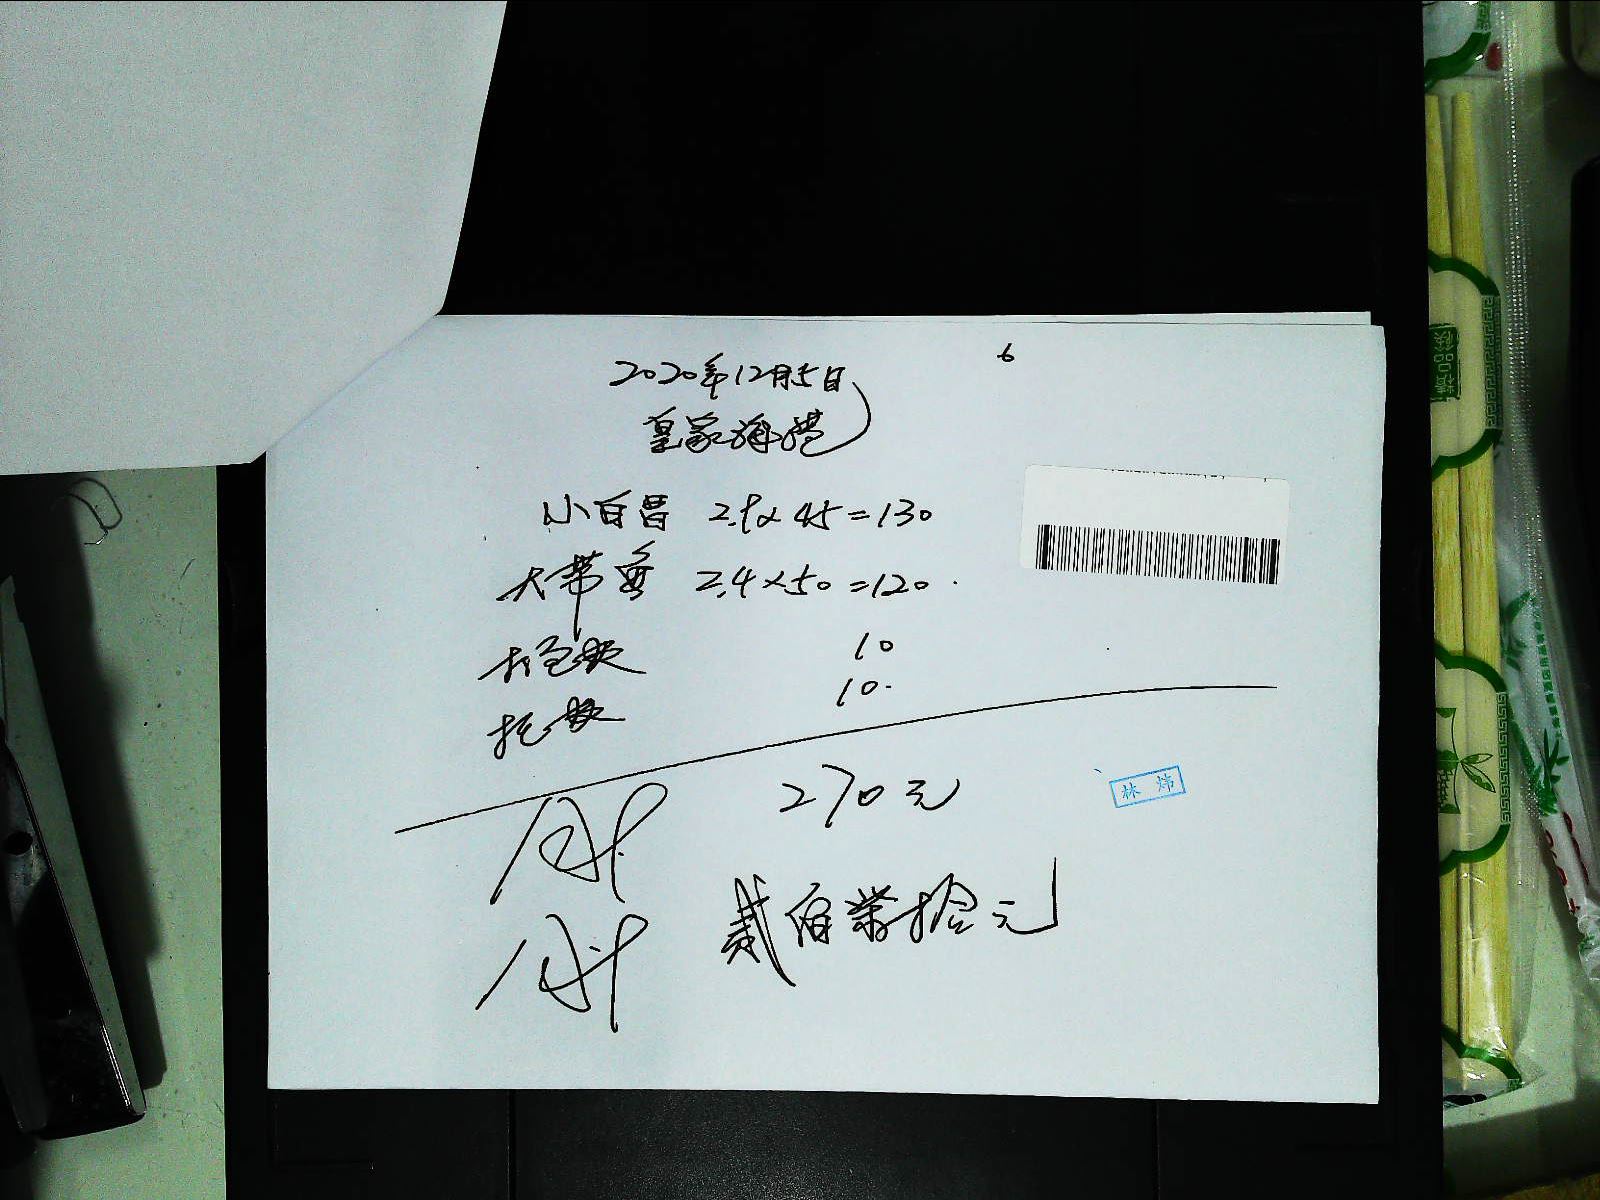 6
2020年12月5日
皇家海港
小白昌 2.9x45=130
大带鱼 2.4x50=120
打包款 10
托款 10
270元
林炜
贰佰柒拾元